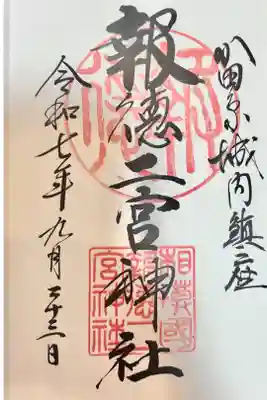 小田原城内鎮座
報徳二宮神社
相模國
報徳二
宮神社
令和七年九月二十三日